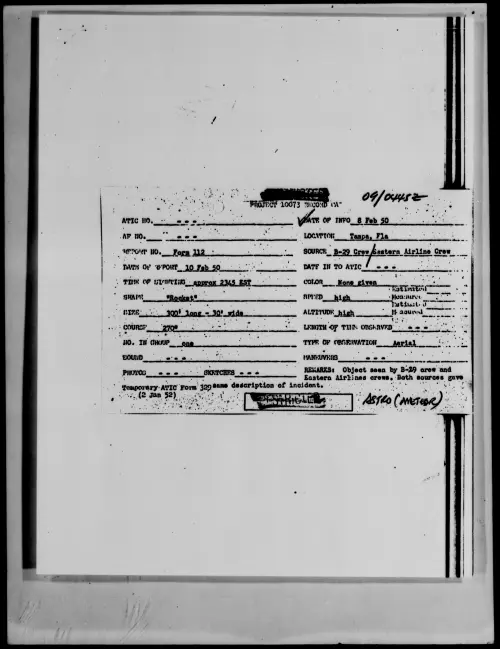 09/0445Z
PROJECT 10073 RECORD CARD
ATIC NO. - - -
DATE OF INFO 8 Feb 50
AF NO. - - -
LOCATION Tampa, Fla
REPORT NO. Form 112
SOURCE B-29 Crew/Eastern Airline Crew
DATE OF REPORT 10 Feb 50
DATE IN TO ATIC - - -
TIME OF SIGHTING approx 2345 EST
COLOR None given
SHAPE "Rocket"
SPEED high
Estimated
Measured
SIZE 300' long - 30' wide
ALTITUDE high
Estimated
Measured
COURSE 270°
LENGTH OF TIME OBSERVED - - -
NO. IN GROUP one
TYPE OF OBSERVATION Aerial
SOUND - - -
MANEUVERS - - -
PHOTOS - - - SKETCHES - - -
REMARKS: Object seen by B-29 crew and
Eastern Airlines crews. Both sources gave
same description of incident.
Temporary ATIC Form 329
(2 Jan 52)
ASTRO (METEOR)